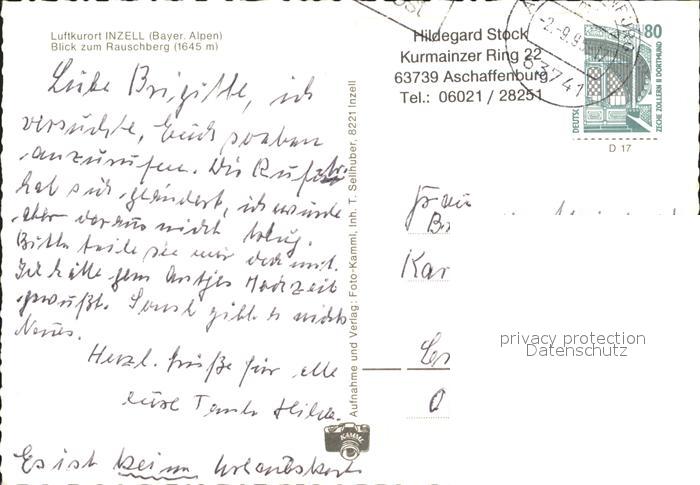 Luftkurort INZELL (Bayer. Alpen)
Blick zum Rauschberg (1645 m)
Hildegard Stock
Kurmainzer Ring 22
63739 Aschaffenburg
Tel.: 06021 / 28251
80
ZECHE ZOLLERN II DORTMUND
D 17
63741
Liebe Brigitte, ich
versuchte, Euch soeben
anzurufen. Die Rufnr.
hat sich geändert, ich wurde
aber daraus nicht klug.
Bitte teile sie mir doch mit.
Ich hätte gern Antjes Hochzeit
gewußt. Sonst gibt es nichts
Neues.
Herzl. Grüße für alle
Eure Tante Hilde.
Es ist kein Urlaubskarte
Aufnahme und Verlag: Foto-Kamml, Inh. T. Sellhuber, 8221 Inzell
KAMML
Frau
privacy protection
Datenschutz